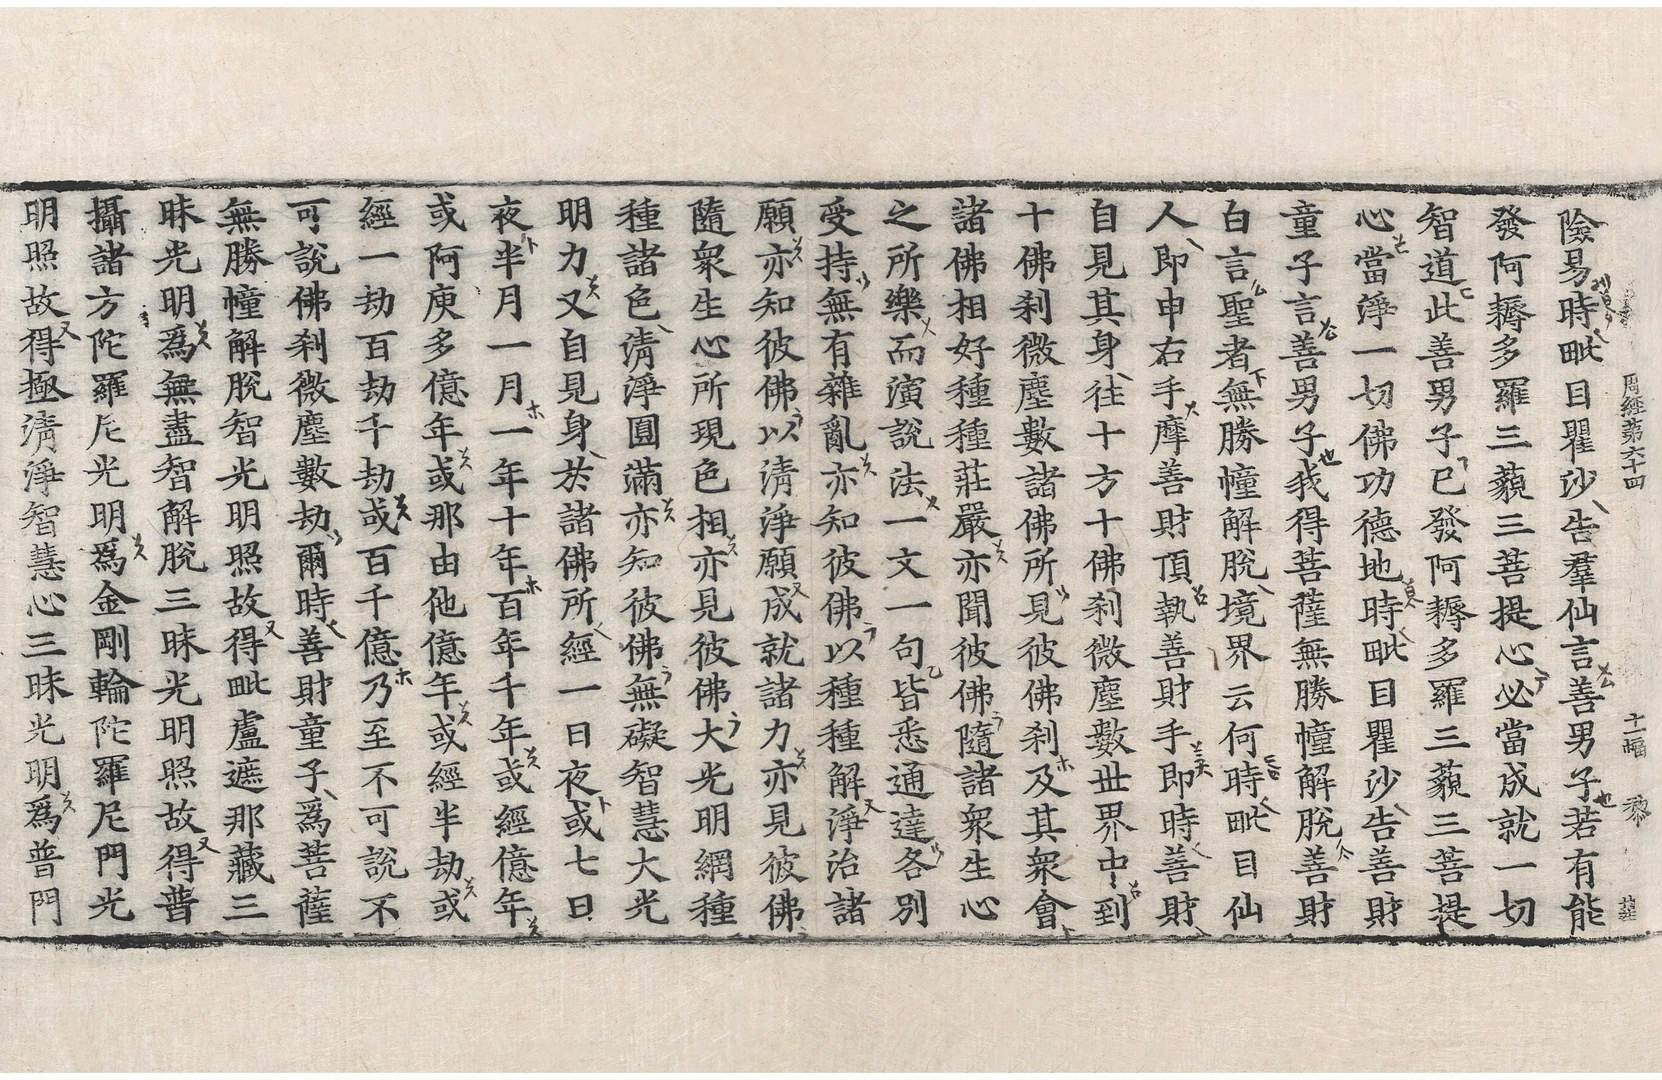 周經第六十四　十一幅　黎
險易時毗目瞿沙告羣仙言善男子若有能
發阿耨多羅三藐三菩提心必當成就一切
智道此善男子已發阿耨多羅三藐三菩提
心當淨一切佛功德地時毗目瞿沙告善財
童子言善男子我得菩薩無勝幢解脫善財
白言聖者無勝幢解脫境界云何時毗目仙
人即申右手摩善財頂執善財手即時善財
自見其身往十方十佛刹微塵數世界中到
十佛刹微塵數諸佛所見彼佛刹及其衆會
諸佛相好種種莊嚴亦聞彼佛隨諸衆生心
之所樂而演說法一文一句皆悉通達各別
受持無有雜亂亦知彼佛以種種解淨治諸
願亦知彼佛以清淨願成就諸力亦見彼佛
隨衆生心所現色相亦見彼佛大光明網種
種諸色清淨圓滿亦知彼佛無礙智慧大光
明力又自見身於諸佛所經一日夜或七日
夜半月一月一年十年百年千年或經億年
或阿庾多億年或那由他億年或經半劫或
經一劫百劫千劫或百千億乃至不可說不
可說佛刹微塵數劫爾時善財童子爲菩薩
無勝幢解脫智光明照故得毗盧遮那藏三
昧光明爲無盡智解脫三昧光明照故得普
攝諸方陀羅尼光明爲金剛輪陀羅尼門光
明照故得極清淨智慧心三昧光明爲普門